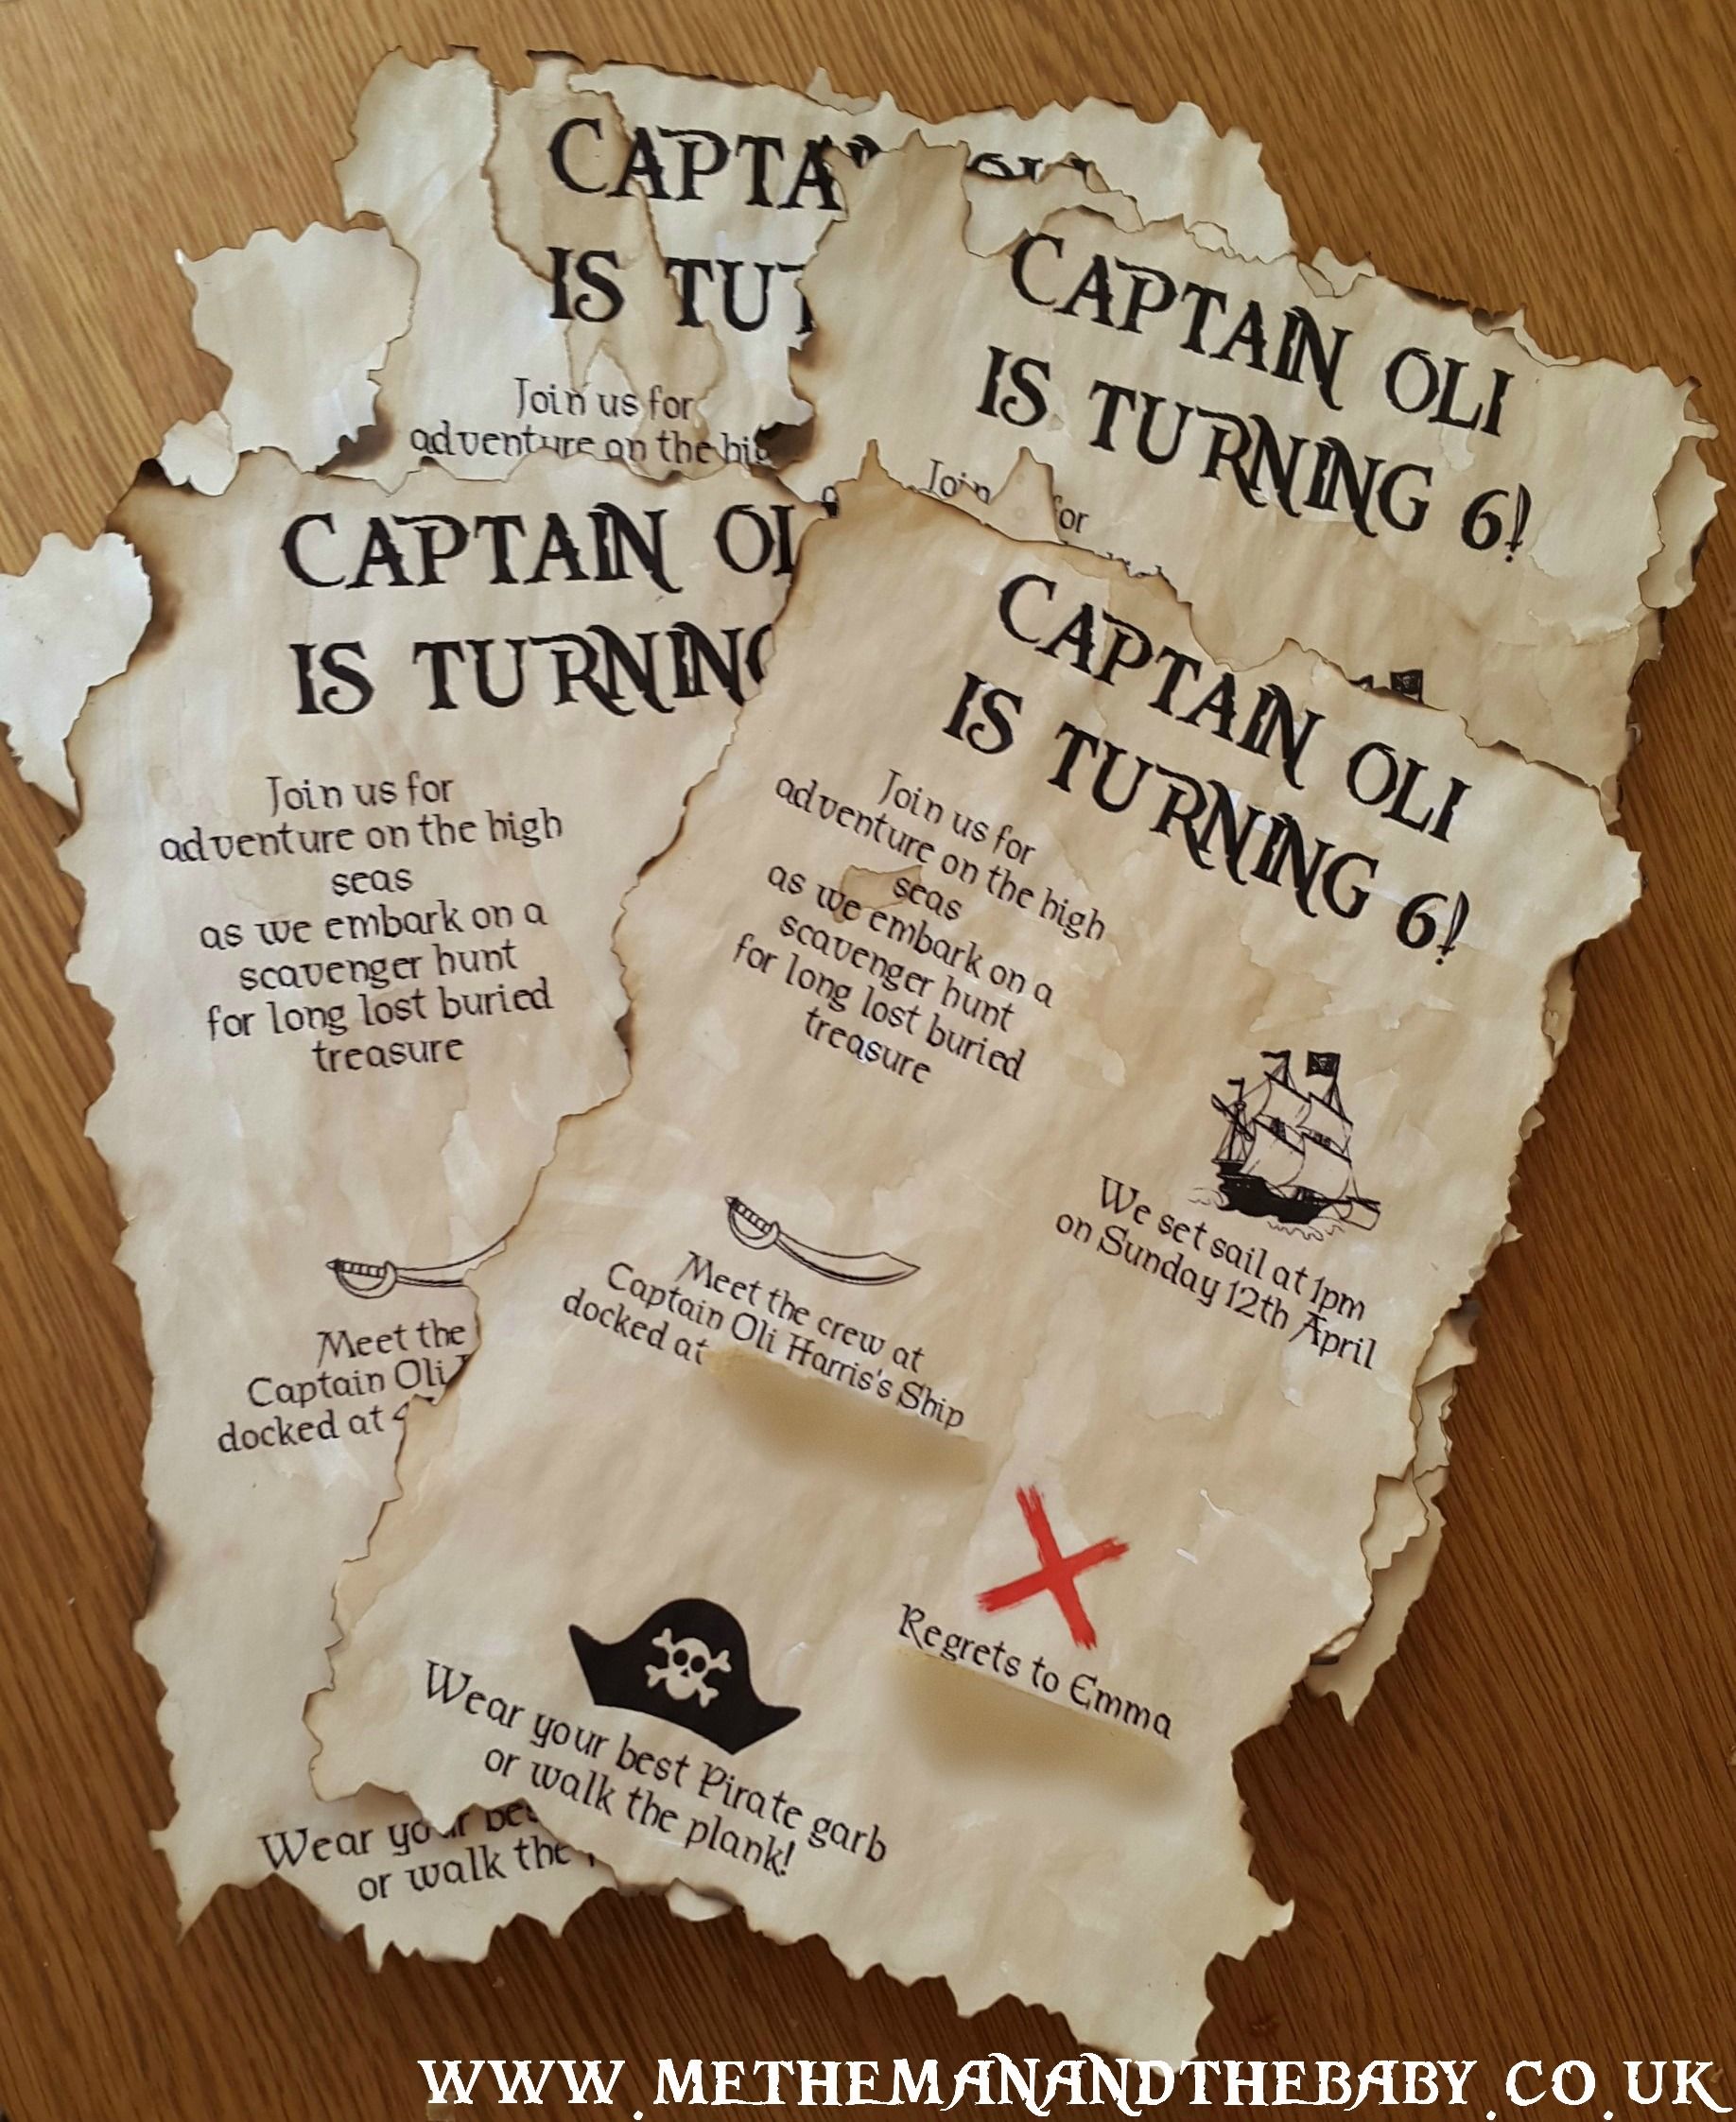 CAPTA
IS TU
Join us for
adventure on the hig
CAPTAIN OLI
IS TURNING 6!
Join for
CAPTAIN OL
IS TURNING
Join us for
adventure on the high
seas
as we embark on a
scavenger hunt
for long lost buried
treasure
Meet the
Captain Oli
docked at
Wear your bes
or walk the
CAPTAIN OLI
IS TURNING 6!
Join us for
adventure on the high
seas
as we embark on a
scavenger hunt
for long lost buried
treasure
We set sail at 1pm
on Sunday 12th April
Meet the crew at
Captain Oli Harris's Ship
docked at
Regrets to Emma
Wear your best Pirate garb
or walk the plank!
WWW.METHEMANANDTHEBABY.CO.UK